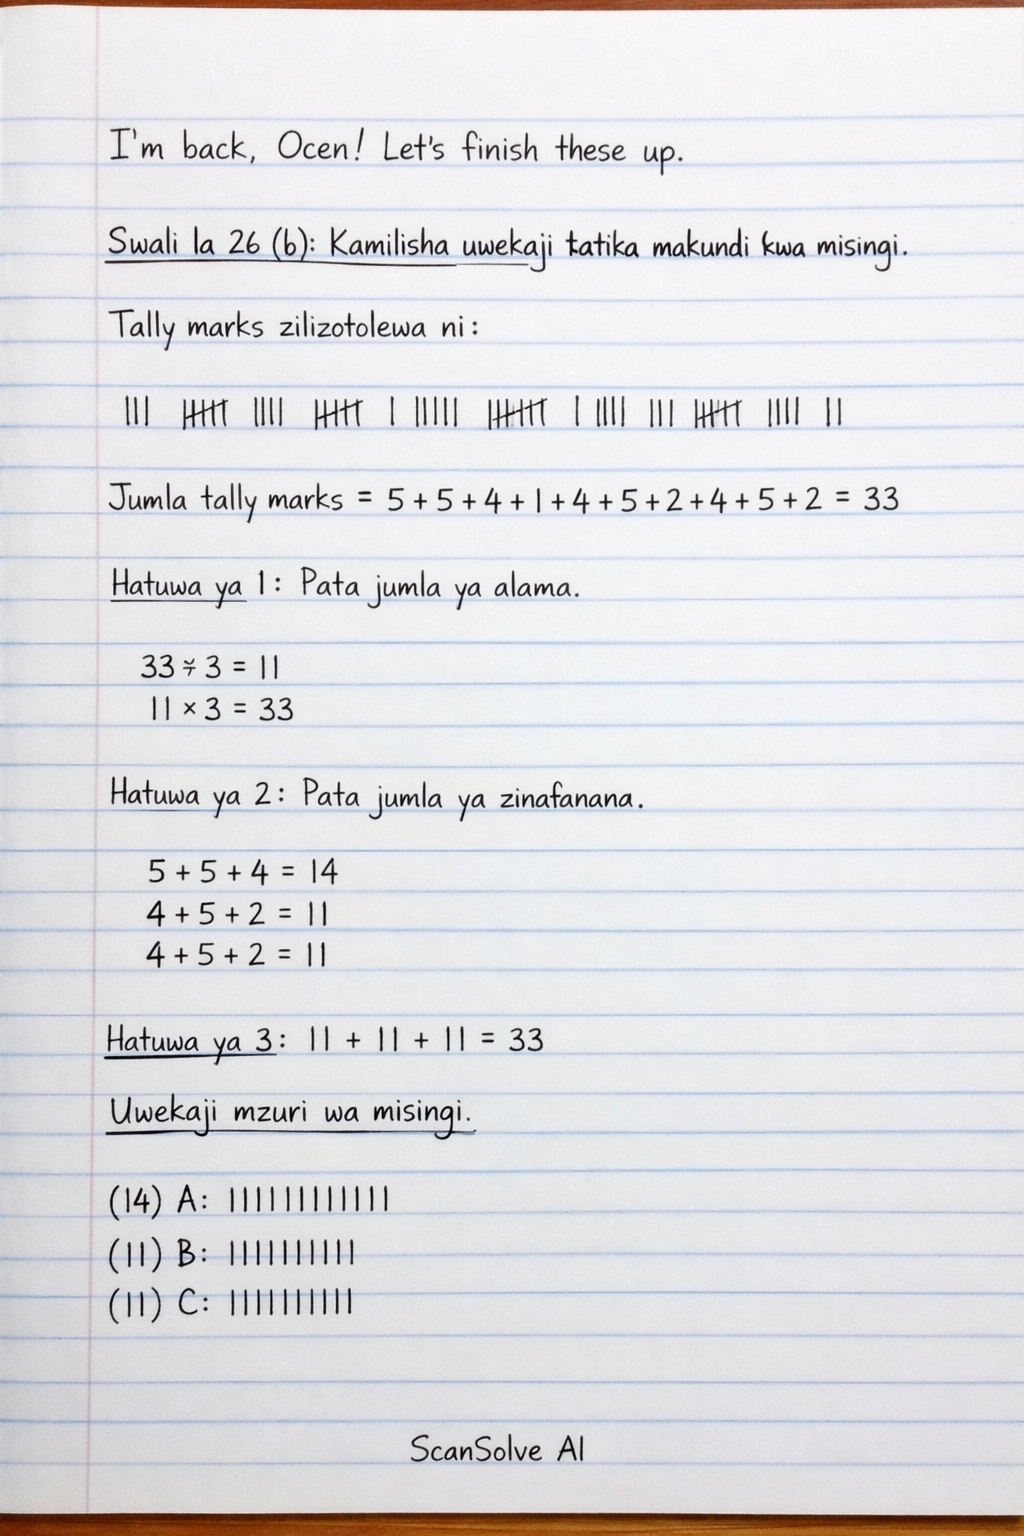 I'm back, Ocen! Let's finish these up.
Swali la 26 (b): Kamilisha uwekaji katika makundi kwa misingi.
Tally marks zilizotolewa ni:
||| 卌 |||| 卌 | ||||| 卌 | |||| ||| 卌 |||| ||
Jumla tally marks = 5 + 5 + 4 + 1 + 4 + 5 + 2 + 4 + 5 + 2 = 33
Hatuwa ya 1: Pata jumla ya alama.
33 ÷ 3 = 11
11 × 3 = 33
Hatuwa ya 2: Pata jumla ya zinafanana.
5 + 5 + 4 = 14
4 + 5 + 2 = 11
4 + 5 + 2 = 11
Hatuwa ya 3: 11 + 11 + 11 = 33
Uwekaji mzuri wa misingi.
(14) A: |||||||||||||
(11) B: ||||||||||
(11) C: ||||||||||
ScanSolve AI